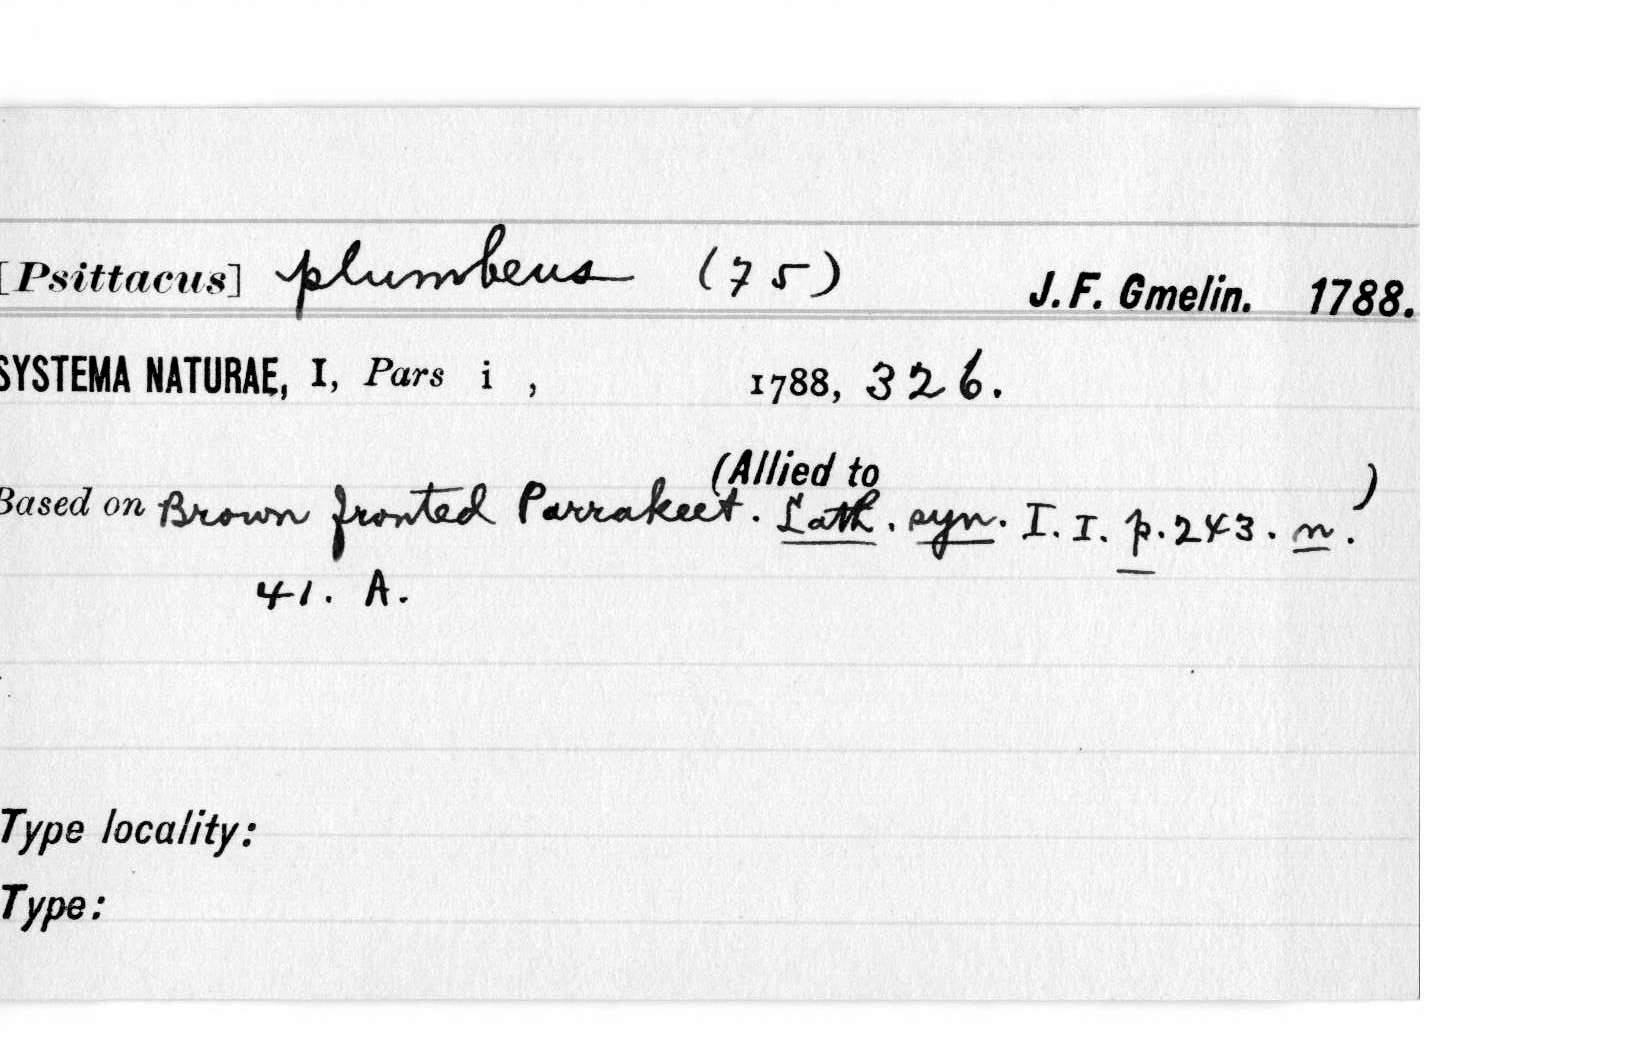 [Psittacus] plumbeus (75) J. F. Gmelin. 1788.
SYSTEMA NATURAE, I, Pars i , 1788, 326.
(Allied to )
Based on Brown fronted Parrakeet. Lath. syn. I. I. p. 243. n.
41. A.
Type locality:
Type: